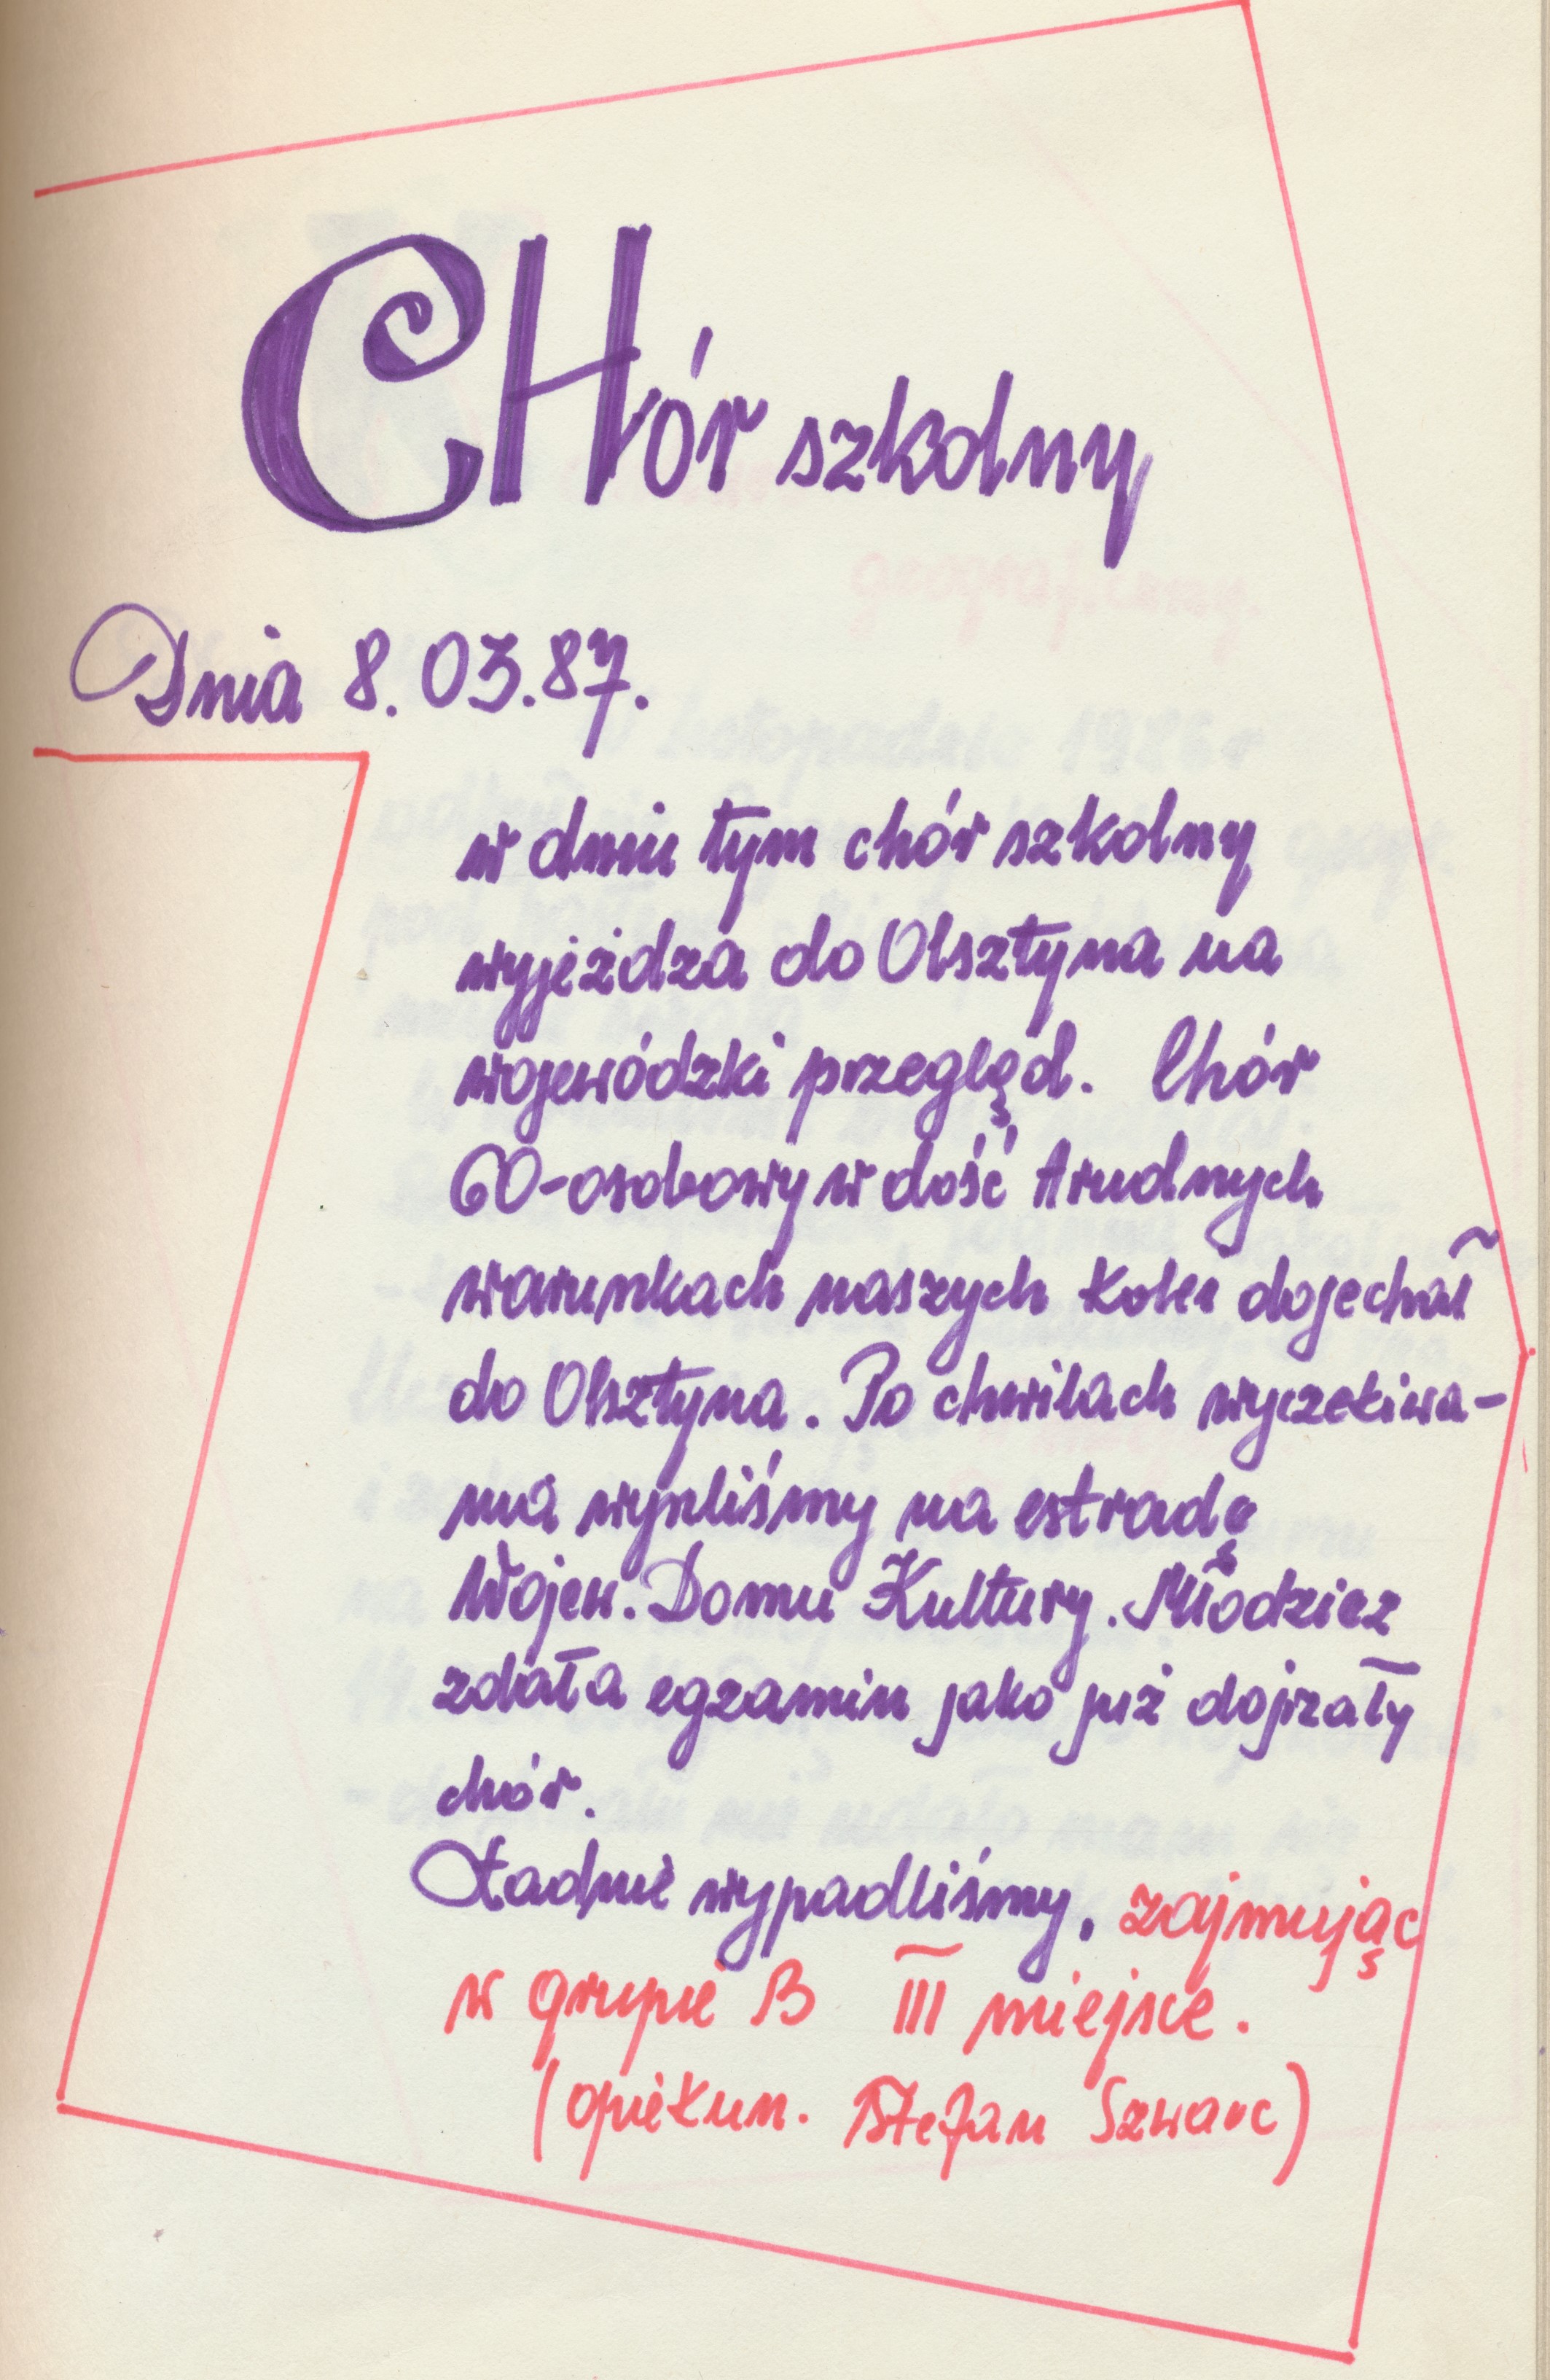 CHór szkolny
Dnia 8.03.87.
w dniu tym chór szkolny
wyjeżdza do Olsztyna na
wojewódzki przegląd. Chór
60-osobowy w dość trudnych
warunkach naszych kolei dojechał
do Olsztyna. Po chwilach wyczekiwa-
nia wyszliśmy na estradę
Wojew. Domu Kultury. Młodzież
zdała egzamin jako już dojrzały
chór.
Ładnie wypadliśmy, zajmując
w grupie B III miejsce.
(opiekun. Stefan Szwarc)